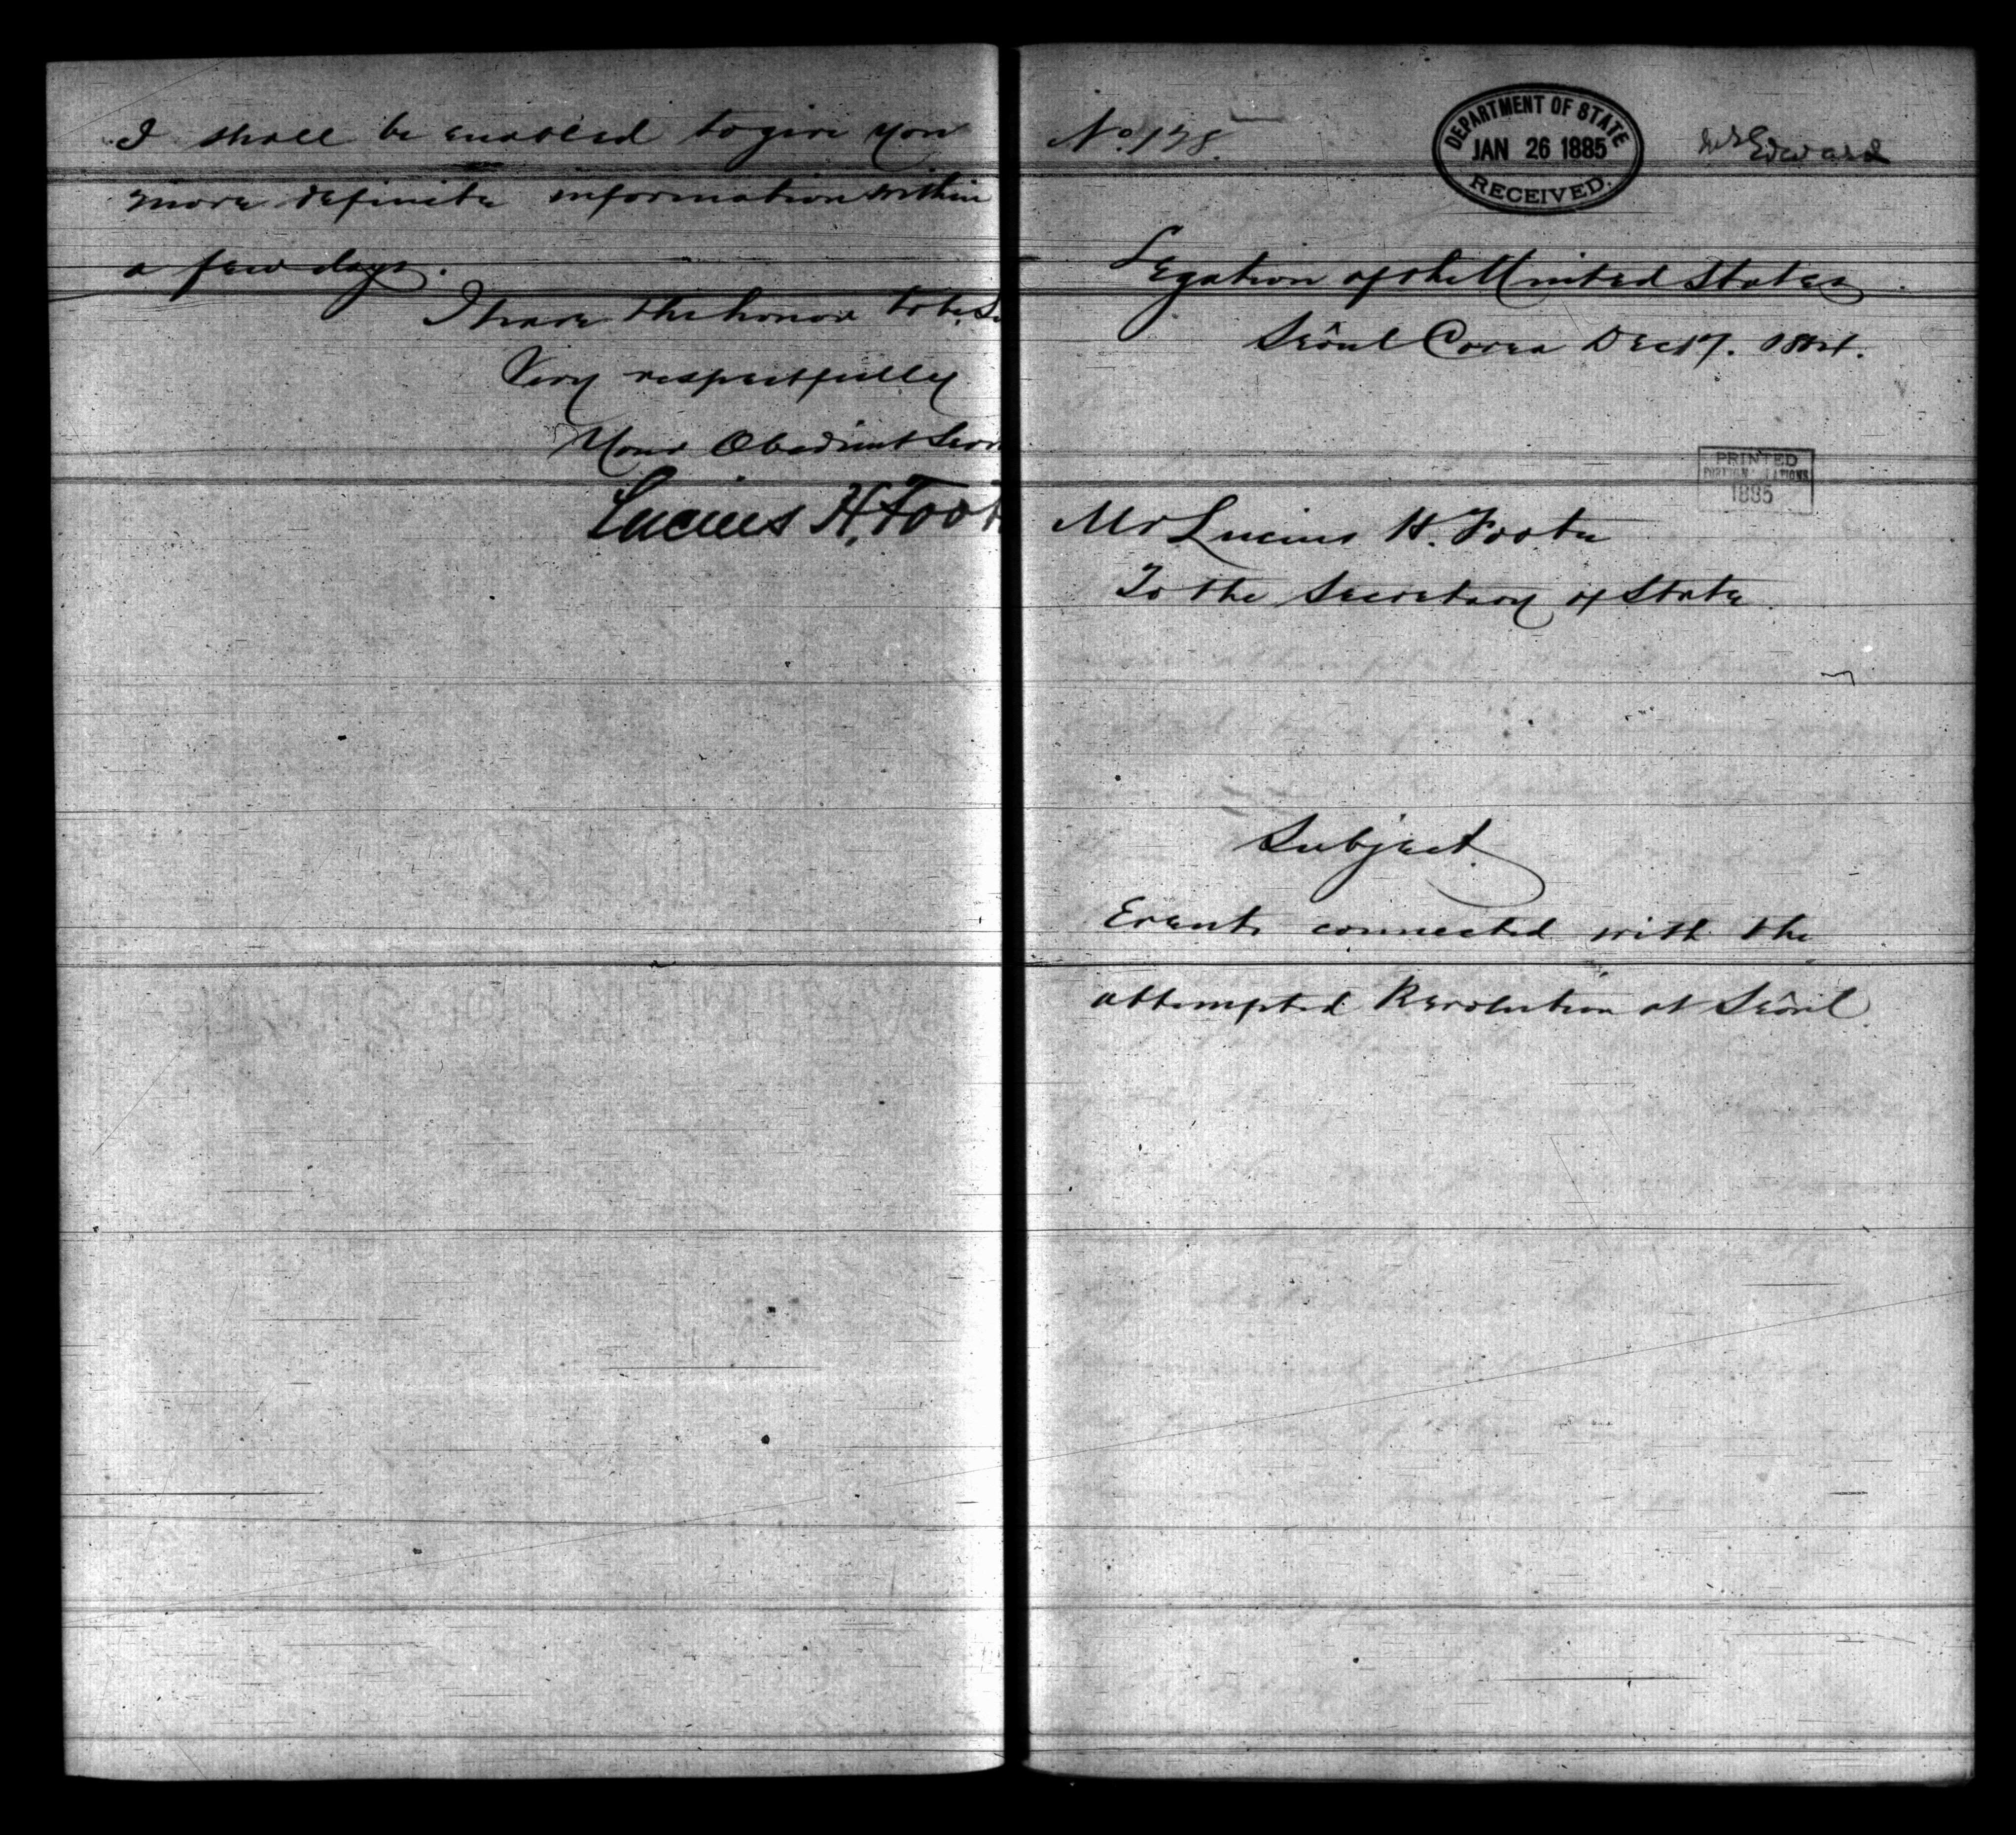 I shall be enabled to give you
more definite information within
a few days.
I have the honor to be, S
Very respectfully
Your Obedient Serv
Lucius H. Foot
No. 128.
DEPARTMENT OF STATE
JAN 26 1885
RECEIVED.
Legation of the United States
Seôul Corea Dec 17. 1884.
PRINTED
FOREIGN RELATIONS
1885
Mr Lucius H. Foote
To the Secretary of State
Subject.
Events connected with the
attempted Revolution at Seôul